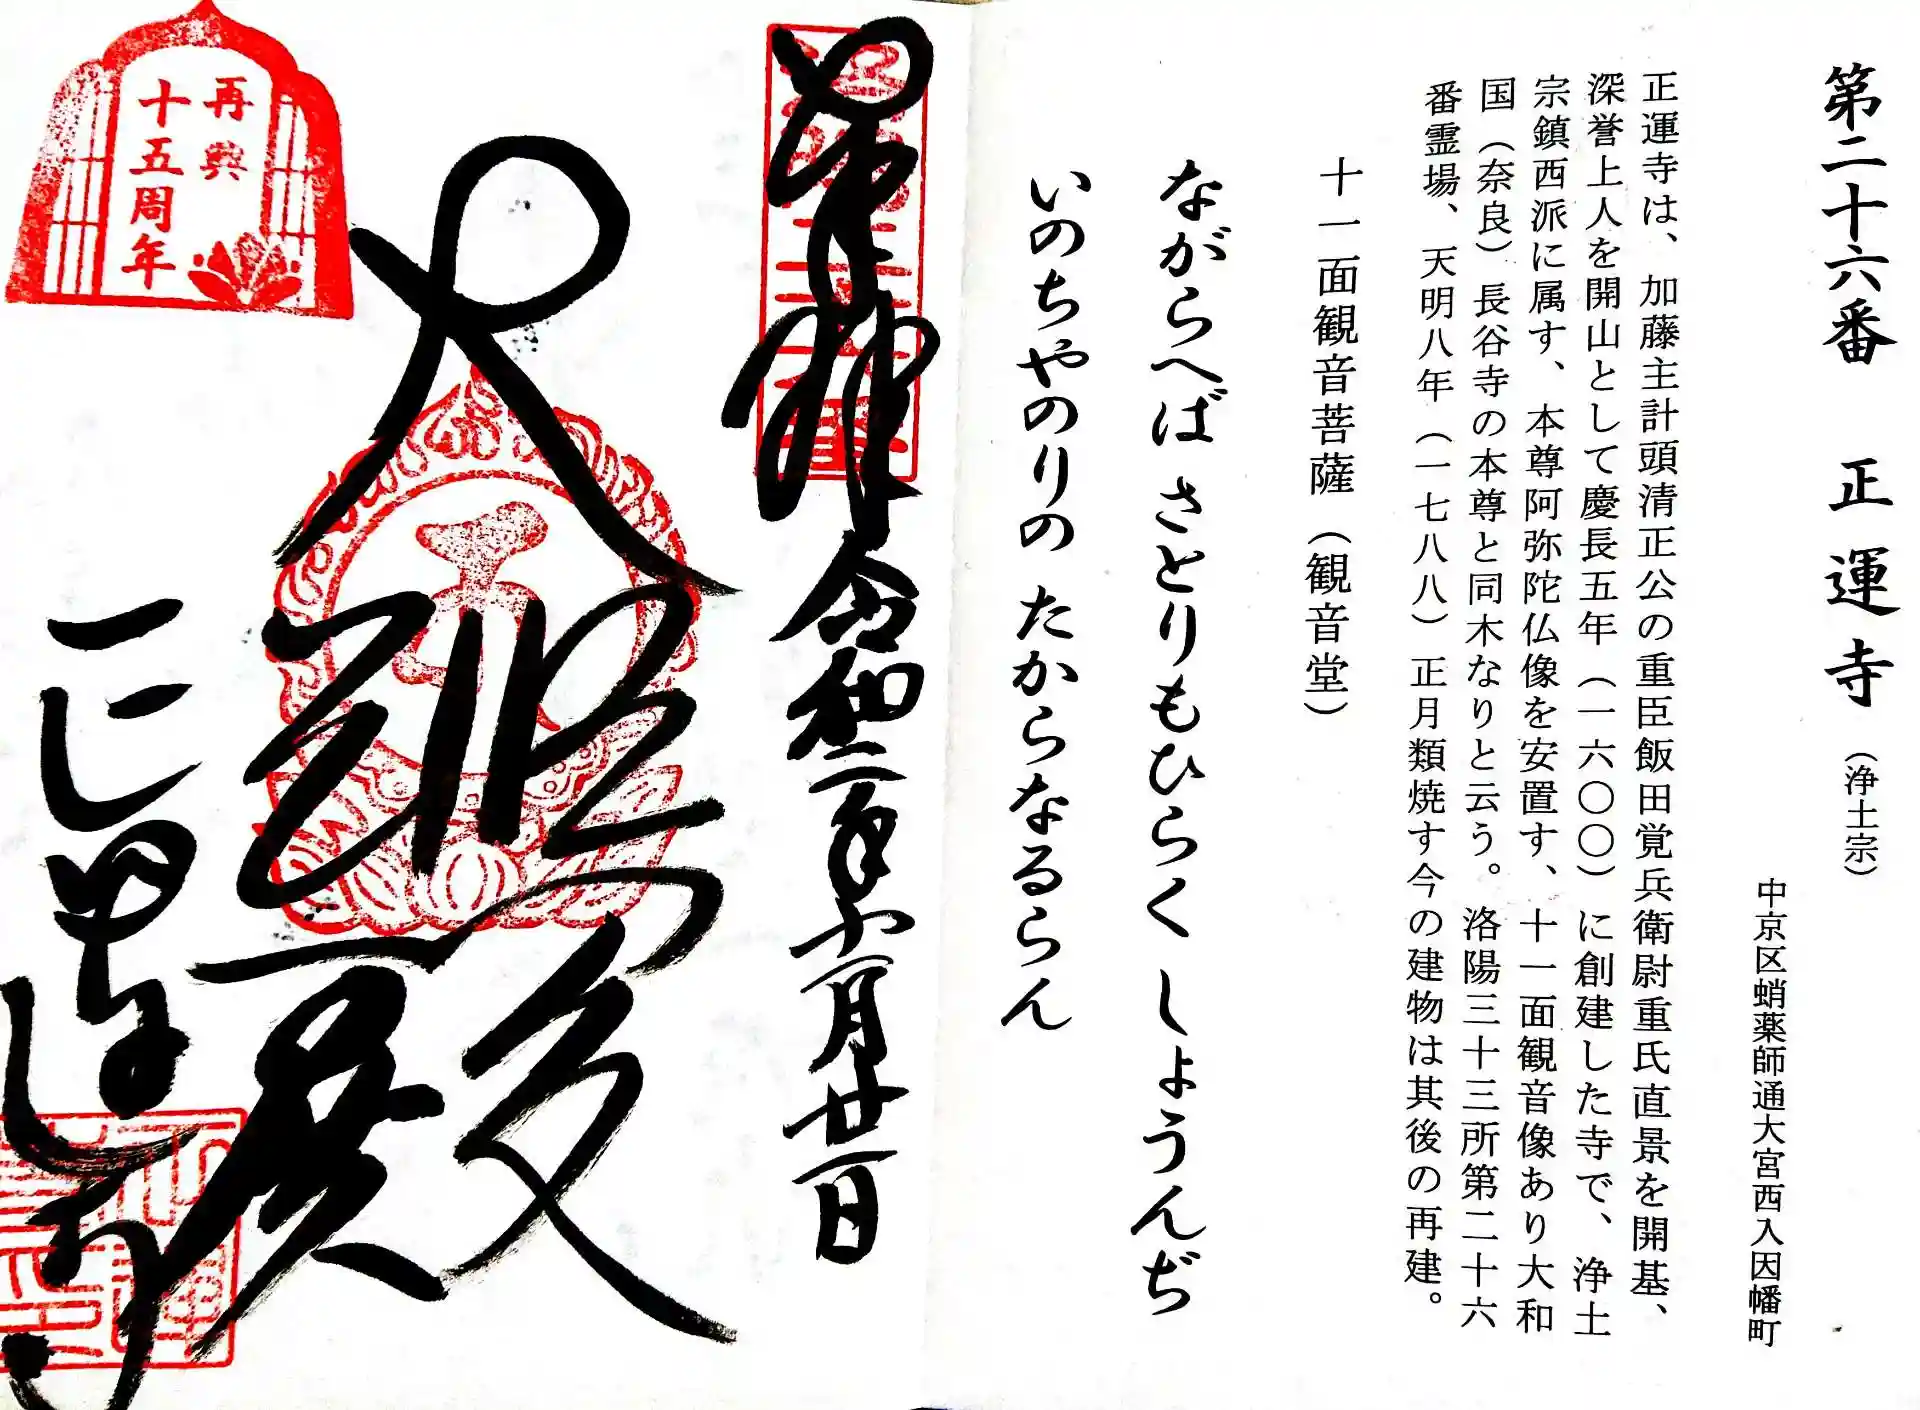 第二十六番 正運寺（浄土宗）
中京区蛸薬師通大宮西入因幡町
正運寺は、加藤主計頭清正公の重臣飯田覚兵衛尉重氏直景を開基、
深誉上人を開山として慶長五年（一六〇〇）に創建した寺で、浄土
宗鎮西派に属す、本尊阿弥陀仏像を安置す、十一面観音像あり大和
国（奈良）長谷寺の本尊と同木なりと云う。洛陽三十三所第二十六
番霊場、天明八年（一七八八）正月類焼す今の建物は其後の再建。
十一面観音菩薩（観音堂）
ながらへば さとりもひらく しょうんぢ
いのちやのりの たからなるらん
奉拝 令和二年十一月廿一日
大悲殿
正運寺
再興
十五周年